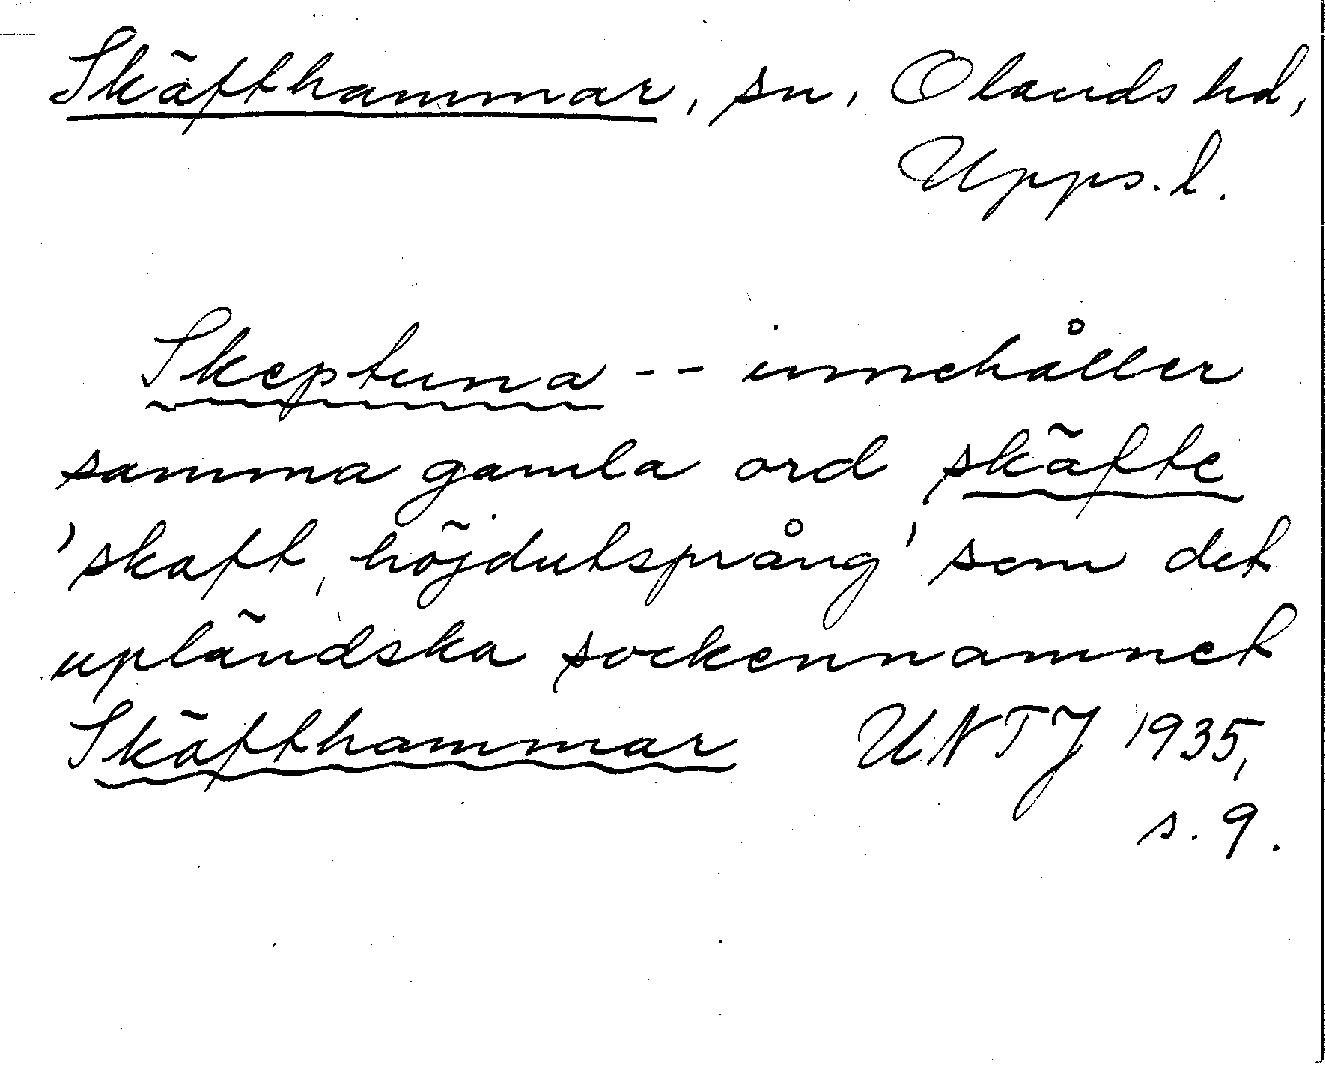 Skäfthammar, sn, Olands hd,
Upps. l.
Skeptuna -- innehåller
samma gamla ord skäfte
'skaft, höjdutsprång' som det
upländska sockennamnet
Skäfthammar UNTJ 1935,
s. 9.